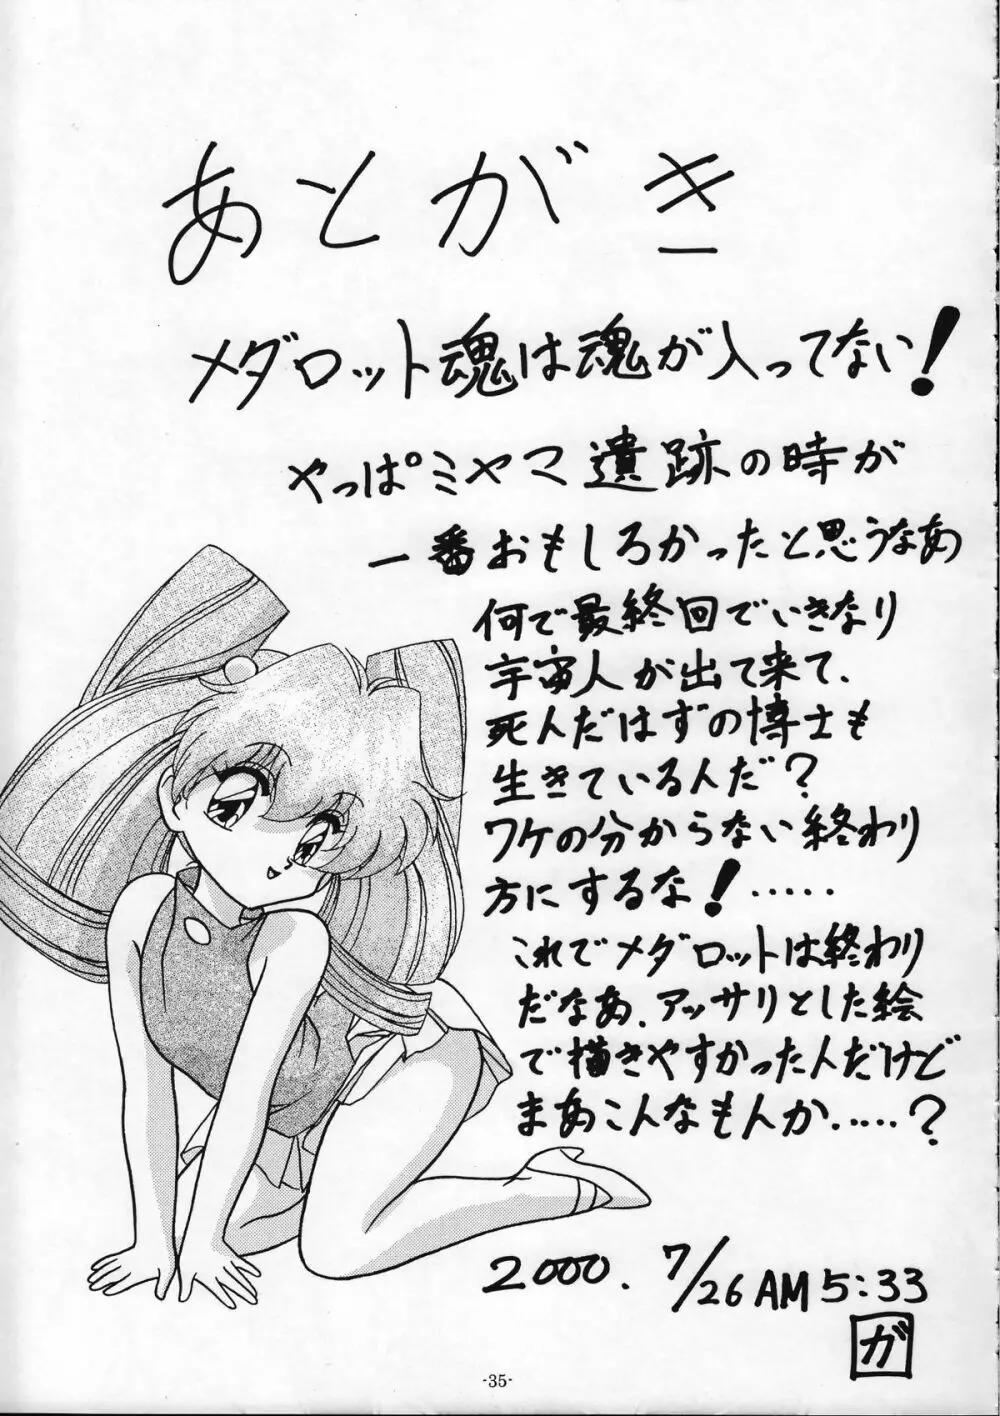 あとがき
メダロット魂は魂が入ってない！
やっぱミヤマ遺跡の時が
一番おもしろかったと思うなあ
何で最終回でいきなり
宇宙人が出て来て、
死人だはずの博士も
生きている人だ？
ワケの分からない終わり
方にするな！‥‥‥
これでメダロットは終わり
だなあ、アッサリとした絵
で描きやすかった人だけど
まあこんなもんか‥‥‥？
2000. 7/26 AM 5:33
ガ
-35-